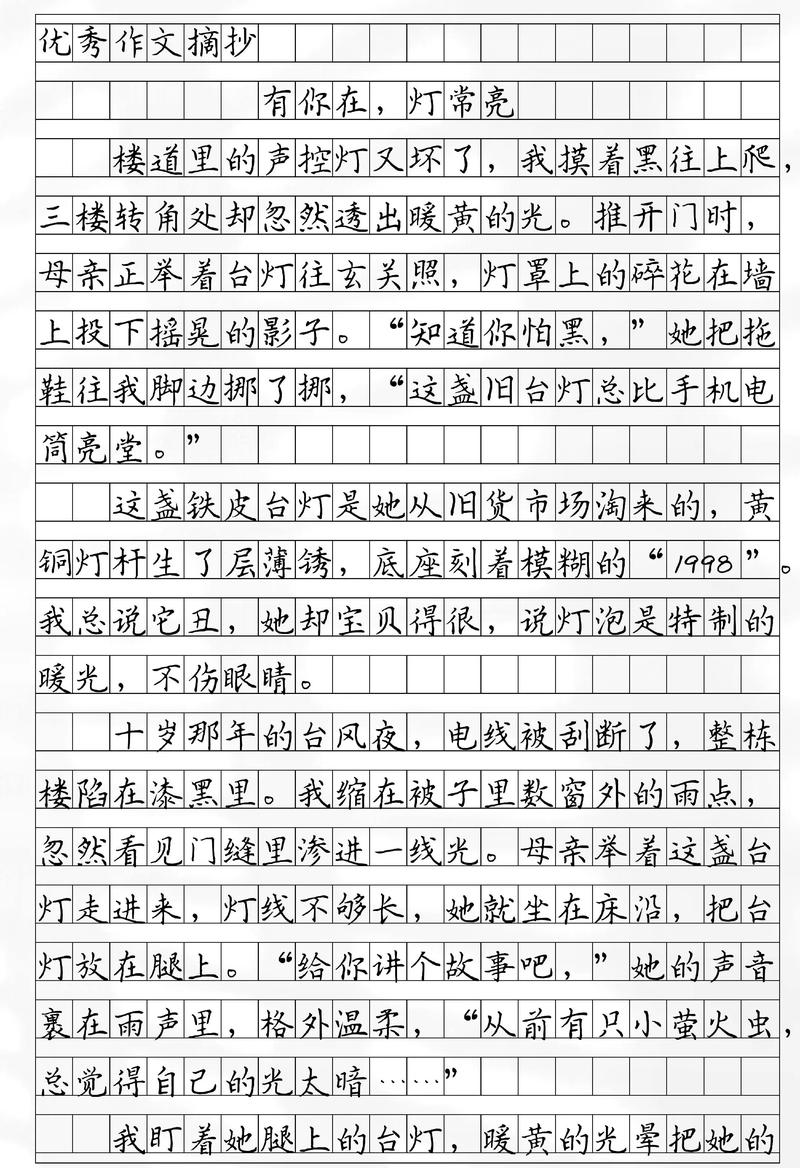 优秀作文摘抄
有你在，灯常亮
楼道里的声控灯又坏了，我摸着黑往上爬，
三楼转角处却忽然透出暖黄的光。推开门时，
母亲正举着台灯往玄关照，灯罩上的碎花在墙
上投下摇晃的影子。“知道你怕黑，”她把拖
鞋往我脚边挪了挪，“这盏旧台灯总比手机电
筒亮堂。”
这盏铁皮台灯是她从旧货市场淘来的，黄
铜灯杆生了层薄锈，底座刻着模糊的“1998”。
我总说它丑，她却宝贝得很，说灯泡是特制的
暖光，不伤眼睛。
十岁那年的台风夜，电线被刮断了，整栋
楼陷在漆黑里。我缩在被子里数窗外的雨点，
忽然看见门缝里渗进一线光。母亲举着这盏台
灯走进来，灯线不够长，她就坐在床沿，把台
灯放在腿上。“给你讲个故事吧，”她的声音
裹在雨声里，格外温柔，“从前有只小萤火虫，
总觉得自己的光太暗……”
我盯着她腿上的台灯，暖黄的光晕把她的